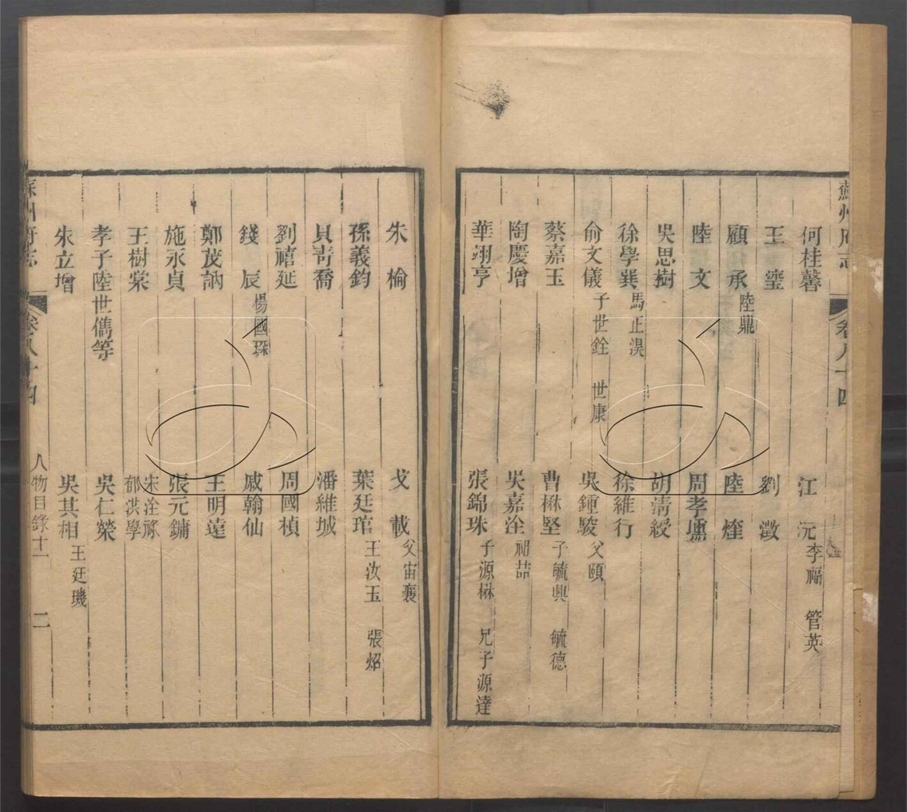 蘇州府志 卷八十四
何桂馨 江沅 李福 管英
王鎏 劉澂
顧承 陸鼎 陸煃
陸文 周孝壎
吳思樹 胡清綬
徐學巽 馬正淏 徐維行
俞文儀 子世銓 世康 吳鍾駿 父頤
蔡嘉玉 曹楙堅 子毓興 毓德
陶慶增 吳嘉洤 喆
華翊亨 張錦珠 子源楙 兄子源達
朱榆 戈載 父宙襄
孫義鈞 葉廷琯 王汝玉 張炤
貝青喬 潘維城
劉禧延 周國楨
錢辰 楊國琛 戚翰仙
鄭茂訥 王明遠
施永貞 張元鏞
王樹棠 宋淦 郁洪學
孝子陸世儁等 吳仁榮
朱立增 吳其相 王廷璣
蘇州府志 卷八十四 人物目錄十一 二